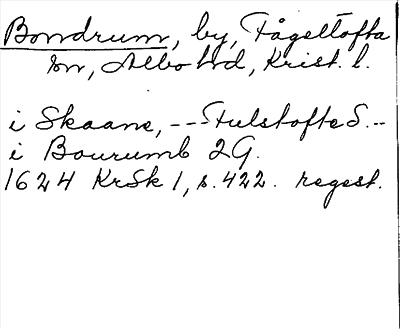 Bondrum, by, Fågeltofta
sn, Albo hd, Krist. l.
i Skaane, --- Fulstofte S. --
i Bourumb 2 G.
1624 KrSk 1, s. 422. regest.